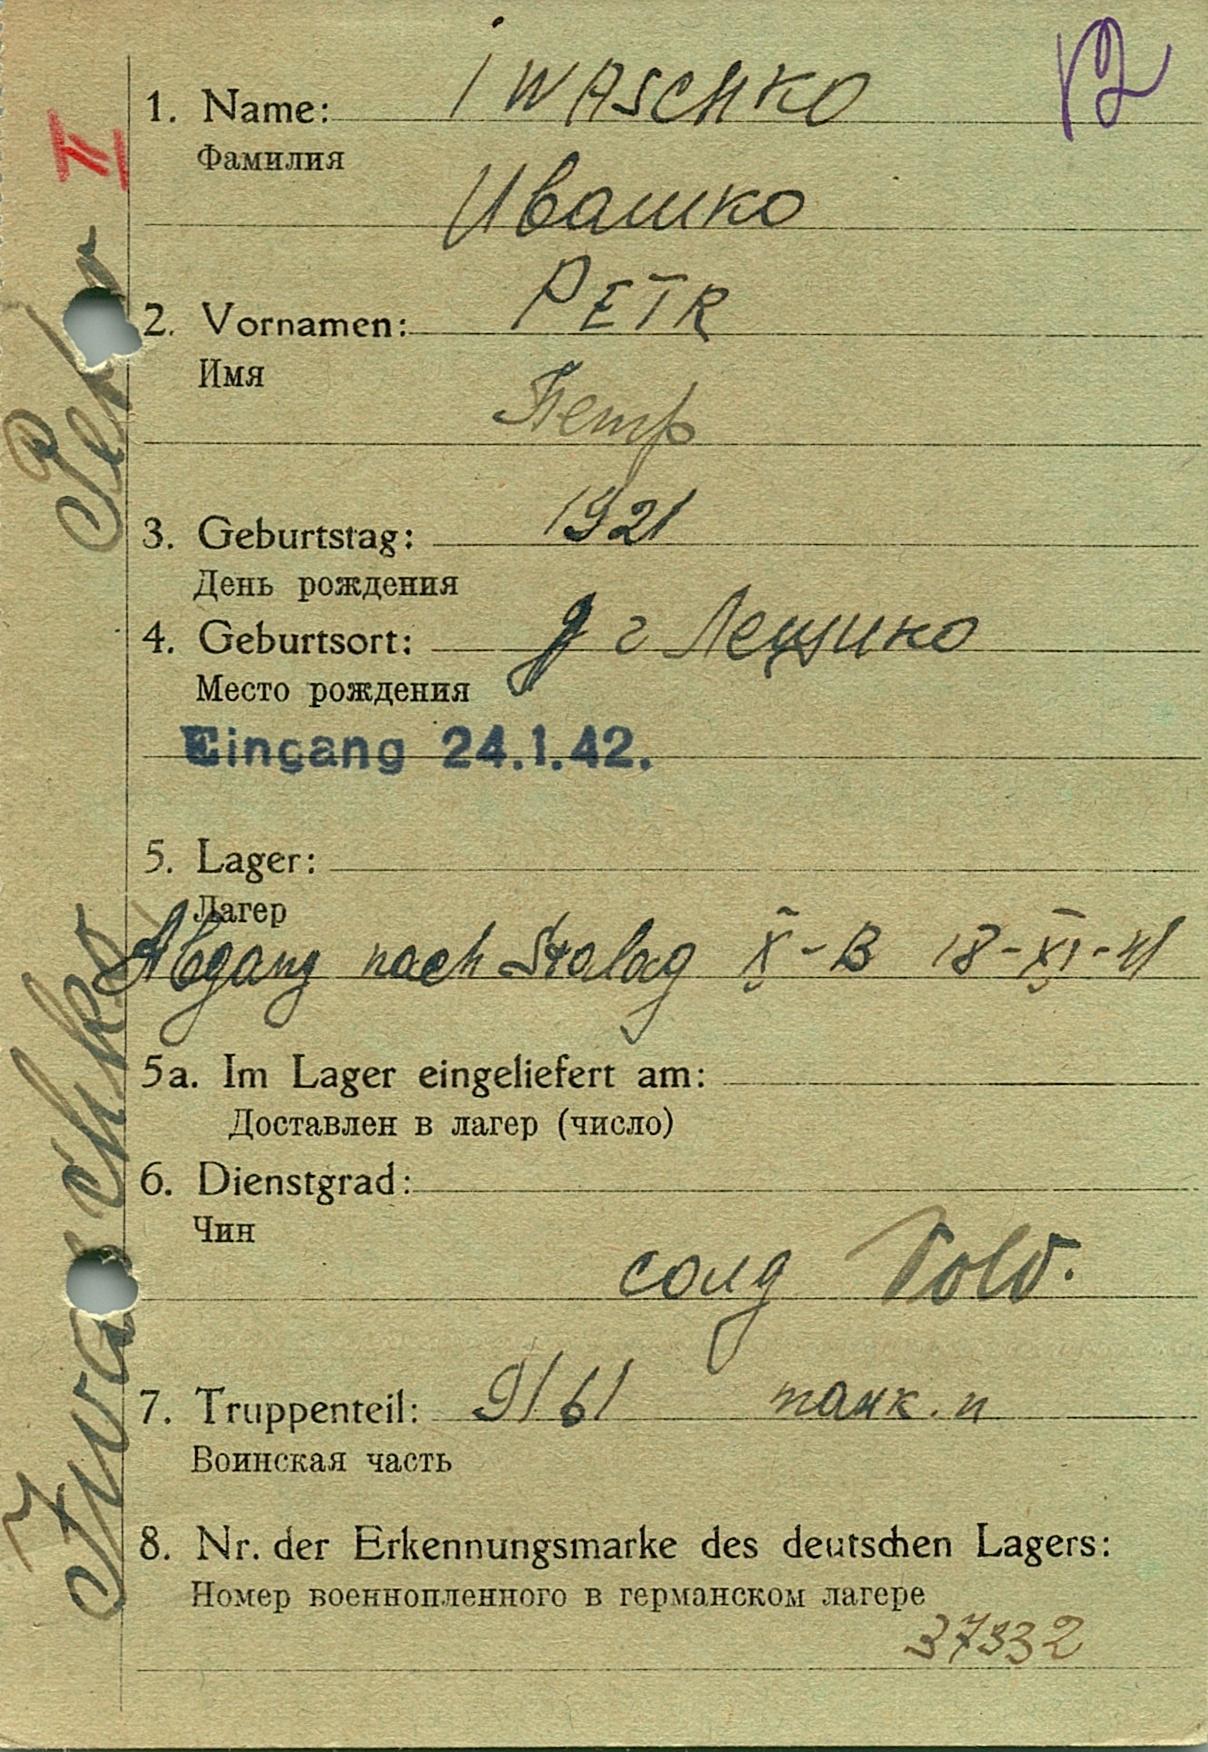 1. Name: IWASCHKO
Фамилия
Ивашко
2. Vornamen: PETR
Имя
Петр
3. Geburtstag: 1921
День рождения
4. Geburtsort: г Лещинко
Место рождения
Eingang 24.1.42.
5. Lager:
Лагер
Abgang nach Stalag X-B 18-XI-41
5a. Im Lager eingeliefert am:
Доставлен в лагер (число)
6. Dienstgrad:
Чин
солд Sold.
7. Truppenteil: 9/61 танк. п
Воинская часть
8. Nr. der Erkennungsmarke des deutschen Lagers:
Номер военнопленного в германском лагере
37332
Iwaschko Petr
II